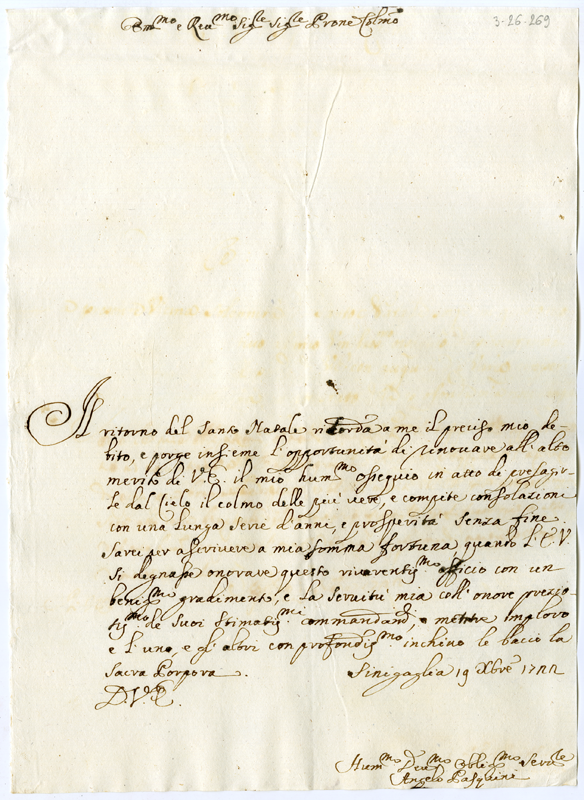 3-26-269
Em.mo e Reu.mo Sig.re Sig.re Prone Colmo
Il ritorno del Santo Natale ricorda a me il preciso mio de-
bito, e porge insieme l'opportunità di rinouare all'alto
merito di V.E. il mio hum.mo ossequio in atto di presagir-
le dal Cielo il colmo delle più vere, e compite consolazioni
con una lunga serie d'anni, e prosperità senza fine
Sarei per ascrivere a mia somma fortuna quando l'E.V.
si degnasse onorare questo riverentis.mo officio con un
benig.mo gradimento, e la Seruitù mia coll'onore prezio-
tis.mo de suoi stimatis.mi commandam.ti, e mentre imploro
e l'uno, e gl'altri con profondis.mo inchino le bacio la
Sacra Porpora. Sinigaglia 19 Xbre 1722
D.V.E.
Hum.mo Deu.mo Obblig.mo Seru.re
Angelo Pasquini